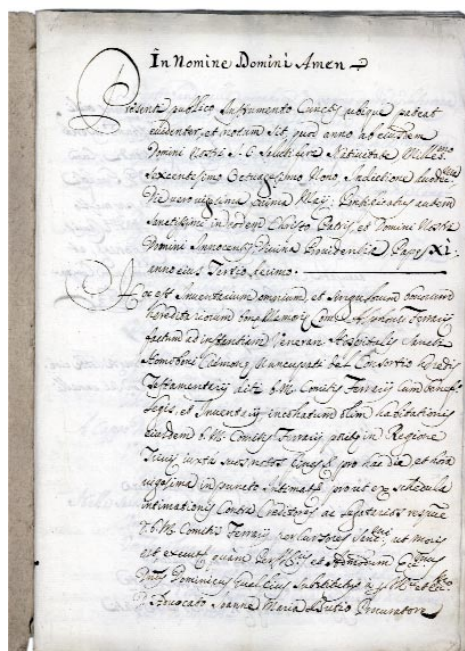 In Nomine Domini Amen
Presenti publico Instrumento Cunctis ubique pateat
evidenter, et notum sit, quod anno ab eiusdem
Domini Nostri J. C. salutifera Nativitate Millesmo
sexcentesimo Octuagesimo Nono, Indictione duodec
Die vero vigesima Maij; Pontificatus autem
Sanctissimi in Christo Patris, et Domini Nostri
Domini Innocentij Divina Providentia Papę XI:
anno eius Tertio decimo.
Hoc est Inventarium omnium, et singulorum bonorum
hereditariorum bonę Memorię Com: Alphonsi Ferrarij
factum ad instantiam Venerab: Hospitalis Sancti
Homoboni nuncupati del Consortio hęredis
Testamentarij dicti b. M. Comitis Ferrarij cum benef:
legis, et Inventarij inchoatum olim habitationis
eiusdem b. M. Comitis Ferrarij positę in Regione
iuxta suos notos fines &. pro hac die et hora
vigesima in puncto intimatę, prout ex schedula
intimationis Contra Creditores ac legatarios
d. b. M. Comitis Ferrarij per Cursores ut moris
est, quam Per et
Dominicus substitutus
D. Advocato Joanne Maria Procuratore